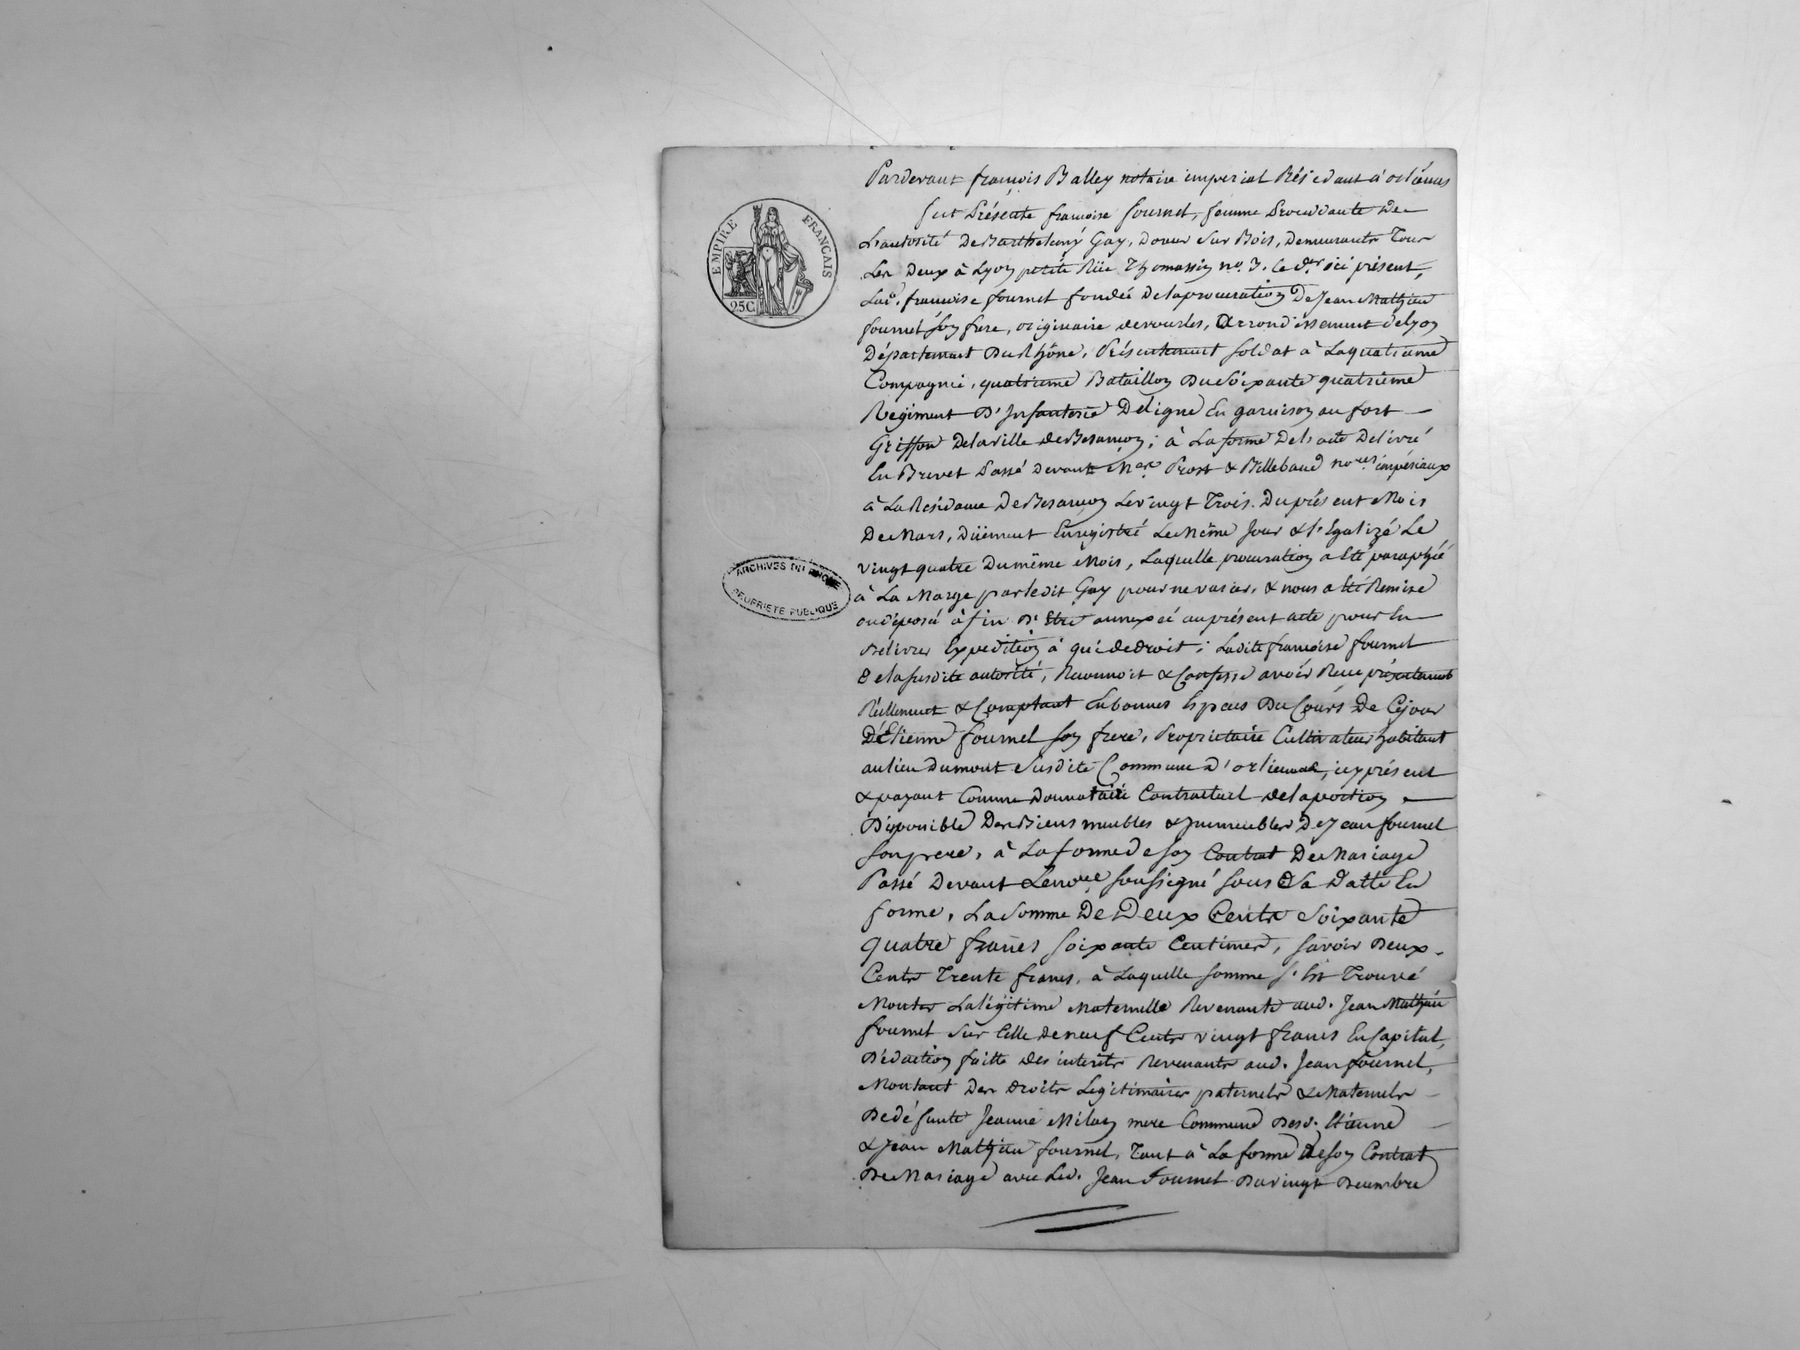 EMPIRE FRANÇAIS
25C
ARCHIVES DU RHONE
PROPRIETE PUBLIQUE
Pardevant françois Balley notaire imperial Résidant à orliénas
fut Présente françoise fournel, femme Procédante De
L'autorité De Barthelemÿ Gay, Doreur sur Bois, Demeurants Tous
Les Deux à Lyon petite Rüe Thomassin no. 3. Le d.er ici présent,
Lad.e françoise fournel fondée de la procuration De Jean Mathieu
fournel son frere, originaire de vourles, Arrondissement de Lyon
Département Du Rhône, Présentement soldat à La quatrieme
Compagnie, quatrieme Bataillon Du Soixante quatrième
Régiment D'Infanterie De Ligne En garnison au fort
Griffon De la ville de Besançon; à La forme De l'acte Délivré
En Brevet Passé Devant Me Prost & Billebaud no.res impériaux
à La Résidance De Besançon Le vingt Trois Du présent Mois
De Mars, Düement Enregistré Le Même Jour & l'Egalizé Le
vingt quatre Du même Mois, Laquelle procuration a Eté paraphée
à La Marge par ledit Gay pour ne varier, & nous a Eté Remise
ou déposée à fin D'Etre annexée au présent acte pour En
Délivrer Expedition à qui de droit; Ladite françoise fournel
De la susdite autorité, Reconnoit & Confesse avoir Reçu présentement
Réellement & Comptant En bonnes Especes Du Cours De Ce jour
D'Etienne fournel son frere, Propriétaire Cultivateur habitant
au lieu Du mont Susdite Commune D'orlienas, icy présent
& payant Comme Donnataire Contractuel de la portion
Disponible Des Biens meubles & Immeubles De Jean fournel
son pere, à La forme de son Contrat De Mariage
Passé Devant Le no.re soussigné sous Sa Datte En
forme, La Somme De Deux Cents Soixante
quatre francs soixante Centimes, savoir Deux
Cents Trente francs, à Laquelle somme s'Est Trouvé
Monter La légitime Maternelle Revenante aud. Jean Mathieu
fournel sur Celle de neuf Cents vingt francs En Capital,
Déduction faitte des interêts Revenants aud. Jean fournel,
Montant Des Droits Légitimaires paternels & Maternels
De défunte Jeanne Milan mere Commune Desd. Etienne
& Jean Mathieu fournel, Tant à La forme De son Contrat
De Mariage avec Led. Jean Fournel Du vingt Décembre